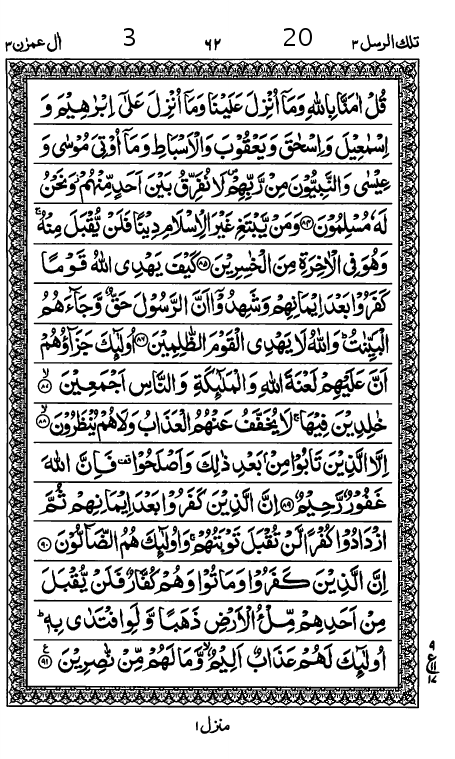 تلك الرسل ٣ 20 ٦٢ 3 اٰل عمرٰن ٣
قُلْ اٰمَنَّا بِاللّٰهِ وَمَاۤ اُنْزِلَ عَلَيْنَا وَمَاۤ اُنْزِلَ عَلٰۤى اِبْرٰهِيْمَ وَ
اِسْمٰعِيْلَ وَاِسْحٰقَ وَيَعْقُوْبَ وَالْاَسْبَاطِ وَمَاۤ اُوْتِىَ مُوْسٰى وَ
عِيْسٰى وَالنَّبِيُّوْنَ مِنْ رَّبِّهِمْ ۪ لَا نُفَرِّقُ بَيْنَ اَحَدٍ مِّنْهُمْ ۫ وَنَحْنُ
لَهٗ مُسْلِمُوْنَ ﴿۸۴﴾ وَمَنْ يَّبْتَغِ غَيْرَ الْاِسْلَامِ دِيْنًا فَلَنْ يُّقْبَلَ مِنْهُ ۚ
وَهُوَ فِى الْاٰخِرَةِ مِنَ الْخٰسِرِيْنَ ﴿۸۵﴾ كَيْفَ يَهْدِى اللّٰهُ قَوْمًا
كَفَرُوْا بَعْدَ اِيْمَانِهِمْ وَشَهِدُوْۤا اَنَّ الرَّسُوْلَ حَقٌّ وَّجَآءَهُمُ
الْبَيِّنٰتُ ؕ وَاللّٰهُ لَا يَهْدِى الْقَوْمَ الظّٰلِمِيْنَ ﴿۸۶﴾ اُولٰٓئِكَ جَزَآؤُهُمْ
اَنَّ عَلَيْهِمْ لَعْنَةَ اللّٰهِ وَالْمَلٰٓئِكَةِ وَالنَّاسِ اَجْمَعِيْنَ ۙ﴿۸۷﴾
خٰلِدِيْنَ فِيْهَا ۚ لَا يُخَفَّفُ عَنْهُمُ الْعَذَابُ وَلَا هُمْ يُنْظَرُوْنَ ۙ﴿۸۸﴾
اِلَّا الَّذِيْنَ تَابُوْا مِنْۢ بَعْدِ ذٰلِكَ وَاَصْلَحُوْا ۟ فَاِنَّ اللّٰهَ
غَفُوْرٌ رَّحِيْمٌ ﴿۸۹﴾ اِنَّ الَّذِيْنَ كَفَرُوْا بَعْدَ اِيْمَانِهِمْ ثُمَّ
ازْدَادُوْا كُفْرًا لَّنْ تُقْبَلَ تَوْبَتُهُمْ ۚ وَاُولٰٓئِكَ هُمُ الضَّآلُّوْنَ ﴿۹۰﴾
اِنَّ الَّذِيْنَ كَفَرُوْا وَمَاتُوْا وَهُمْ كُفَّارٌ فَلَنْ يُّقْبَلَ
مِنْ اَحَدِهِمْ مِّلْءُ الْاَرْضِ ذَهَبًا وَّلَوِ افْتَدٰى بِهٖ ؕ
اُولٰٓئِكَ لَهُمْ عَذَابٌ اَلِيْمٌ ۙ وَّمَا لَهُمْ مِّنْ نّٰصِرِيْنَ ﴿۹۱﴾ ع
٩
ع
١١
١٧
منزل ١